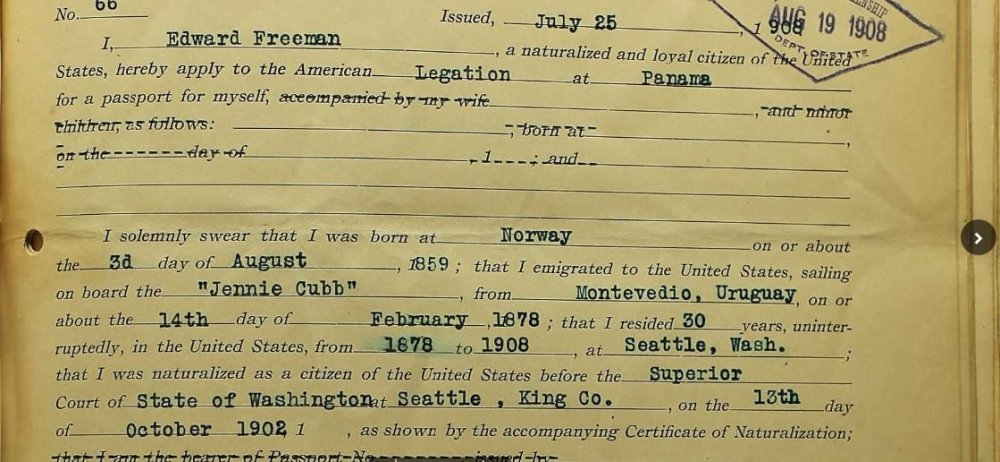 No. 66 Issued, July 25, 1908
AUG 19 1908
DEPT. OF STATE
I, Edward Freeman, a naturalized and loyal citizen of the United
States, hereby apply to the American Legation at Panama
for a passport for myself, accompanied by my wife, and minor
children, as follows: ; born at ,
on the ------- day of , 1 ---; and
I solemnly swear that I was born at Norway on or about
the 3d day of August, 1859; that I emigrated to the United States, sailing
on board the "Jennie Cubb", from Montevedio, Uruguay, on or
about the 14th day of February, 1878; that I resided 30 years, uninter-
ruptedly, in the United States, from 1878 to 1908, at Seattle, Wash. ;
that I was naturalized as a citizen of the United States before the Superior
Court of State of Washington at Seattle, King Co., on the 13th day
of October 1902, 1 , as shown by the accompanying Certificate of Naturalization;
that I am the bearer of Passport No. issued by